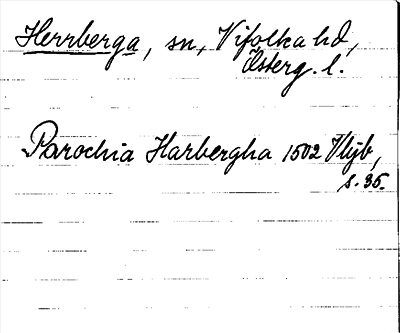 Herrberga, sn, Vifolka hd,
Österg. l.
Parochia Harbergha 1502 Vhjb,
s. 35.